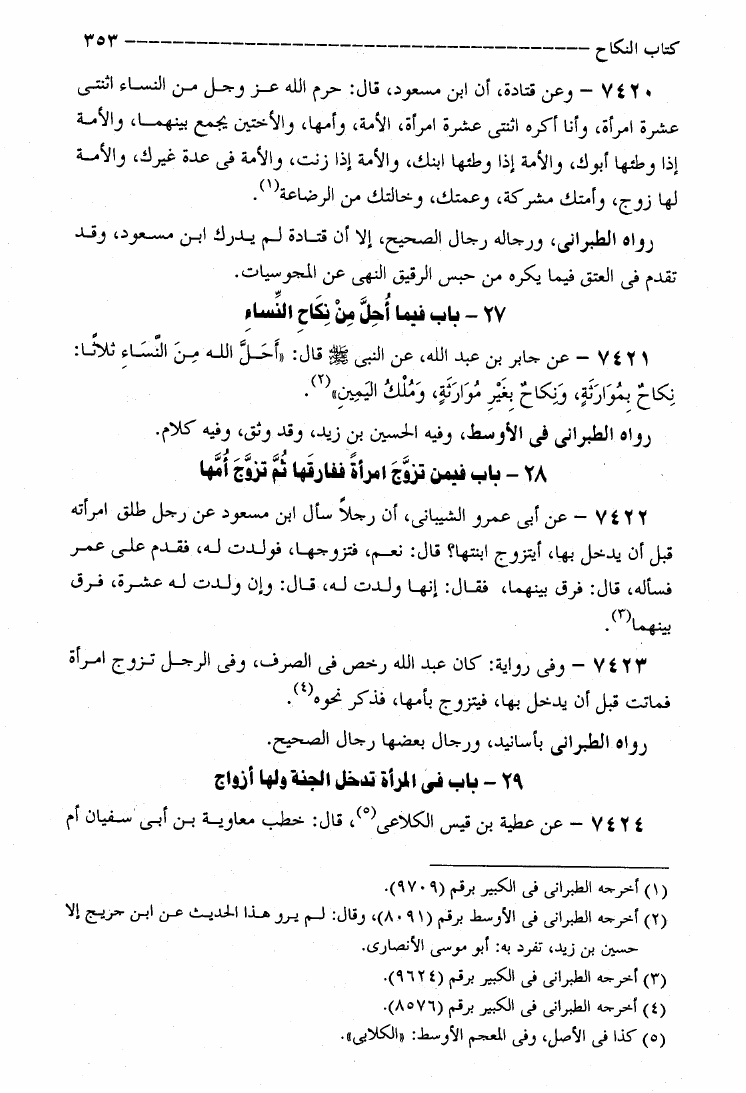 كتاب النكاح ------------------------------------------ ٣٥٣
٧٤٢٠ – وعن قتادة، أن ابن مسعود، قال: حرم الله عز وجل من النساء اثنتى
عشرة امرأة، وأنا أكره اثنتى عشرة امرأة، الأمة، وأمها، والأختين يجمع بينهما، والأمة
إذا وطئها أبوك، والأمة إذا وطئها ابنك، والأمة إذا زنت، والأمة فى عدة غيرك، والأمة
لها زوج، وأمتك مشركة، وعمتك، وخالتك من الرضاعة(١).
رواه الطبرانى، ورجاله رجال الصحيح، إلا أن قتادة لم يدرك ابن مسعود، وقد
تقدم فى العتق فيما يكره من حبس الرقيق النهى عن المجوسيات.
٢٧ – باب فيما أُحِلَّ مِنْ نِكَاحِ النِّساءِ
٧٤٢١ – عن جابر بن عبد الله، عن النبى ﷺ قال: «أَحَلَّ اللـه مِنَ النِّسَاءِ ثلاثًا:
نِكاحٌ بِمُوَارَثَةٍ، وَنِكاحٌ بِغَيْرِ مُوَارَثَةٍ، وَمُلْكُ اليَمِينِ»(٢).
رواه الطبرانى فى الأوسط، وفيه الحسين بن زيد، وقد وثق، وفيه كلام.
٢٨ – باب فيمن تزوَّجَ امرأةً ففارقَها ثُمَّ تزوَّجَ أُمَّها
٧٤٢٢ – عن أبى عمرو الشيبانى، أن رجلاً سأل ابن مسعود عن رجل طلق امرأته
قبل أن يدخل بها، أيتزوج ابنتها؟ قال: نعم، فتزوجها، فولدت له، فقدم على عمر
فسأله، قال: فرق بينهما، فقال: إنها ولدت له، قال: وإن ولدت له عشرة، فرق
بينهما(٣).
٧٤٢٣ – وفى رواية: كان عبد الله رخص فى الصرف، وفى الرجل تزوج امرأة
فماتت قبل أن يدخل بها، فيتزوج بأمها، فذكر نحوه(٤).
رواه الطبرانى بأسانيد، ورجال بعضها رجال الصحيح.
٢٩ – باب فى المرأة تدخل الجنة ولها أزواج
٧٤٢٤ – عن عطية بن قيس الكلاعى(٥)، قال: خطب معاوية بن أبى سفيان أم
(١) أخرجه الطبرانى فى الكبير برقم (٩٧٠٩).
(٢) أخرجه الطبرانى فى الأوسط برقم (٨٠٩١)، وقال: لم يرو هذا الحديث عن ابن جريج إلا
حسين بن زيد، تفرد به: أبو موسى الأنصارى.
(٣) أخرجه الطبرانى فى الكبير برقم (٩٦٢٤).
(٤) أخرجه الطبرانى فى الكبير برقم (٨٥٧٦).
(٥) كذا فى الأصل، وفى المعجم الأوسط: «الكلابى».